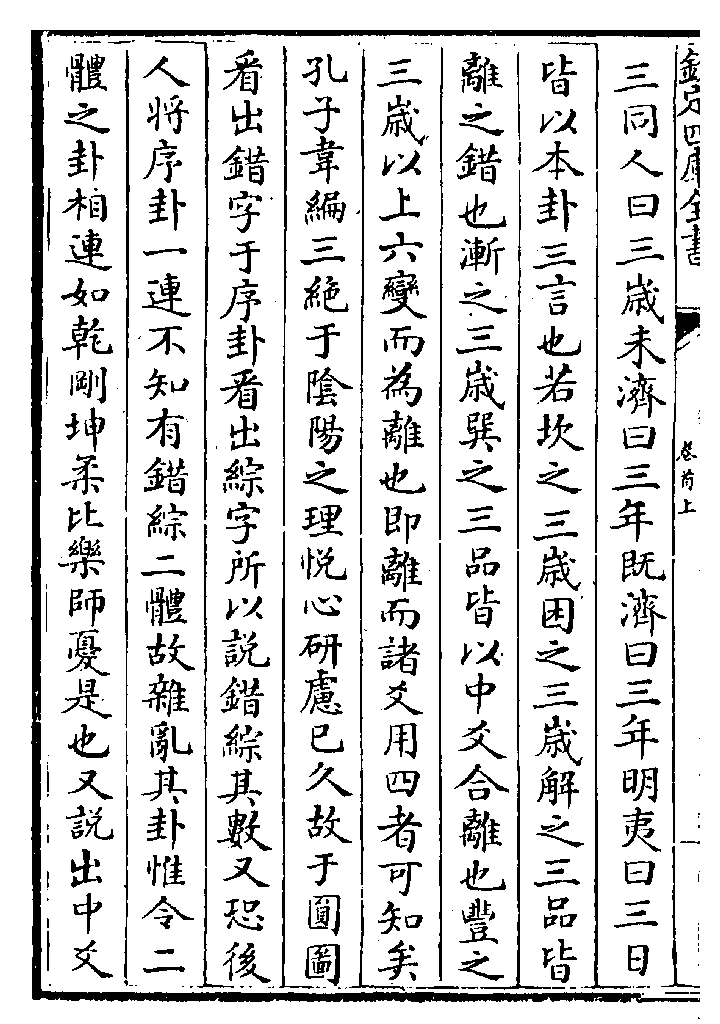 欽定四庫全書
卷首上
三同人曰三歲未濟曰三年既濟曰三年明夷曰三日
皆以本卦三言也若坎之三歲困之三歲解之三品皆
離之錯也漸之三歲巽之三品皆以中爻合離也豐之
三歲以上六變而為離也即離而諸爻用四者可知矣
孔子韋編三絶于陰陽之理悅心研慮已久故于圓圖
看出錯字于序卦看出綜字所以說錯綜其數又恐後
人將序卦一連不知有錯綜二體故雜亂其卦惟令二
體之卦相連如乾剛坤柔比樂師憂是也又說出中爻